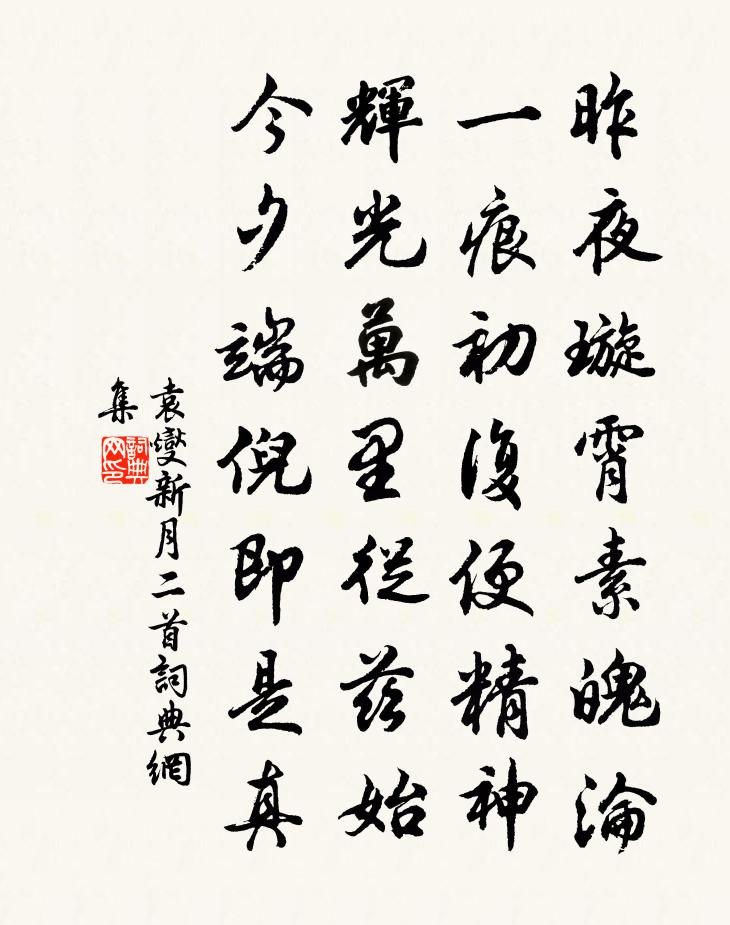 昨夜璇霄素魄淪
一痕初復便精神
輝光萬里從茲始
今夕端倪即是真
袁燮新月二首詞典網
集
詞典網印